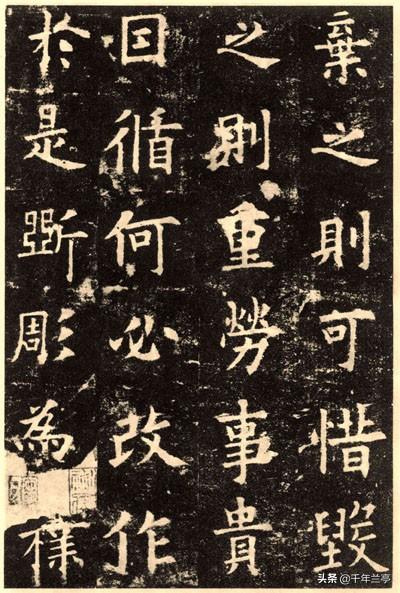 棄之則可惜毀
之則重勞事貴
因循何必改作
於是斲彫為樸
头条 @千年兰亭